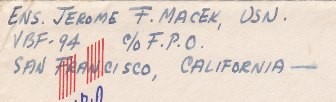 ENS. JEROME F. MACEK, USN.
VBF-94 C/O F.P.O.
SAN FRANCISCO, CALIFORNIA —